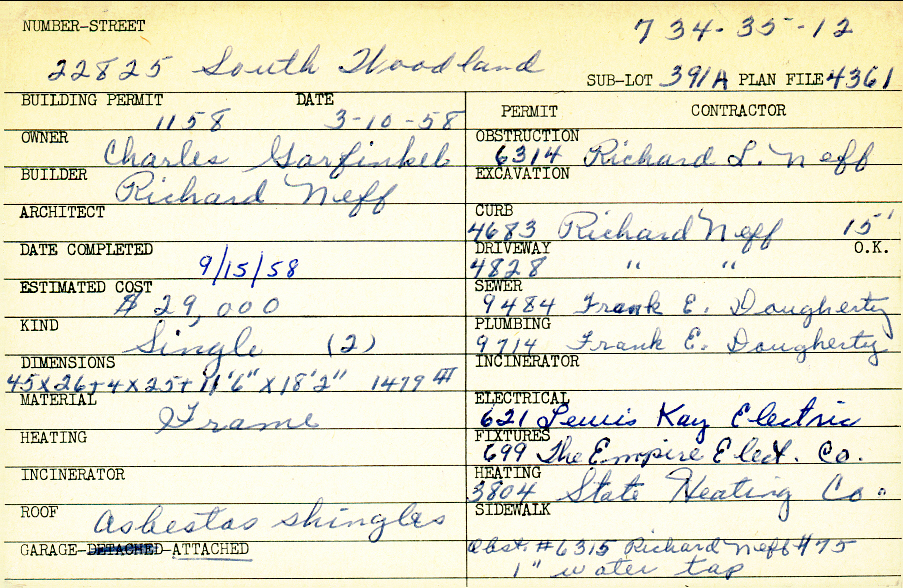 NUMBER-STREET
734-35-12
22825 South Woodland
SUB-LOT 391A PLAN FILE 4361
BUILDING PERMIT DATE
1158 3-10-58
OWNER
Charles Garfinkel
BUILDER
Richard Neff
ARCHITECT
DATE COMPLETED
9/15/58
ESTIMATED COST
$ 29,000
KIND
Single (2)
DIMENSIONS
45x26+4x25+11'6"x18'2" 1479
MATERIAL
Frame
HEATING
INCINERATOR
ROOF
asbestas shingles
GARAGE-DETACHED-ATTACHED
PERMIT CONTRACTOR
OBSTRUCTION
6314 Richard L. Neff
EXCAVATION
CURB
4683 Richard Neff 15'
DRIVEWAY O.K.
4828 " "
SEWER
9484 Frank E. Dougherty
PLUMBING
9714 Frank E. Dougherty
INCINERATOR
ELECTRICAL
621 Lewis Kay Electric
FIXTURES
699 The Empire Elect. Co.
HEATING
3804 State Heating Co.
SIDEWALK
Obst. #6315 Richard Neff #75
1" water tap